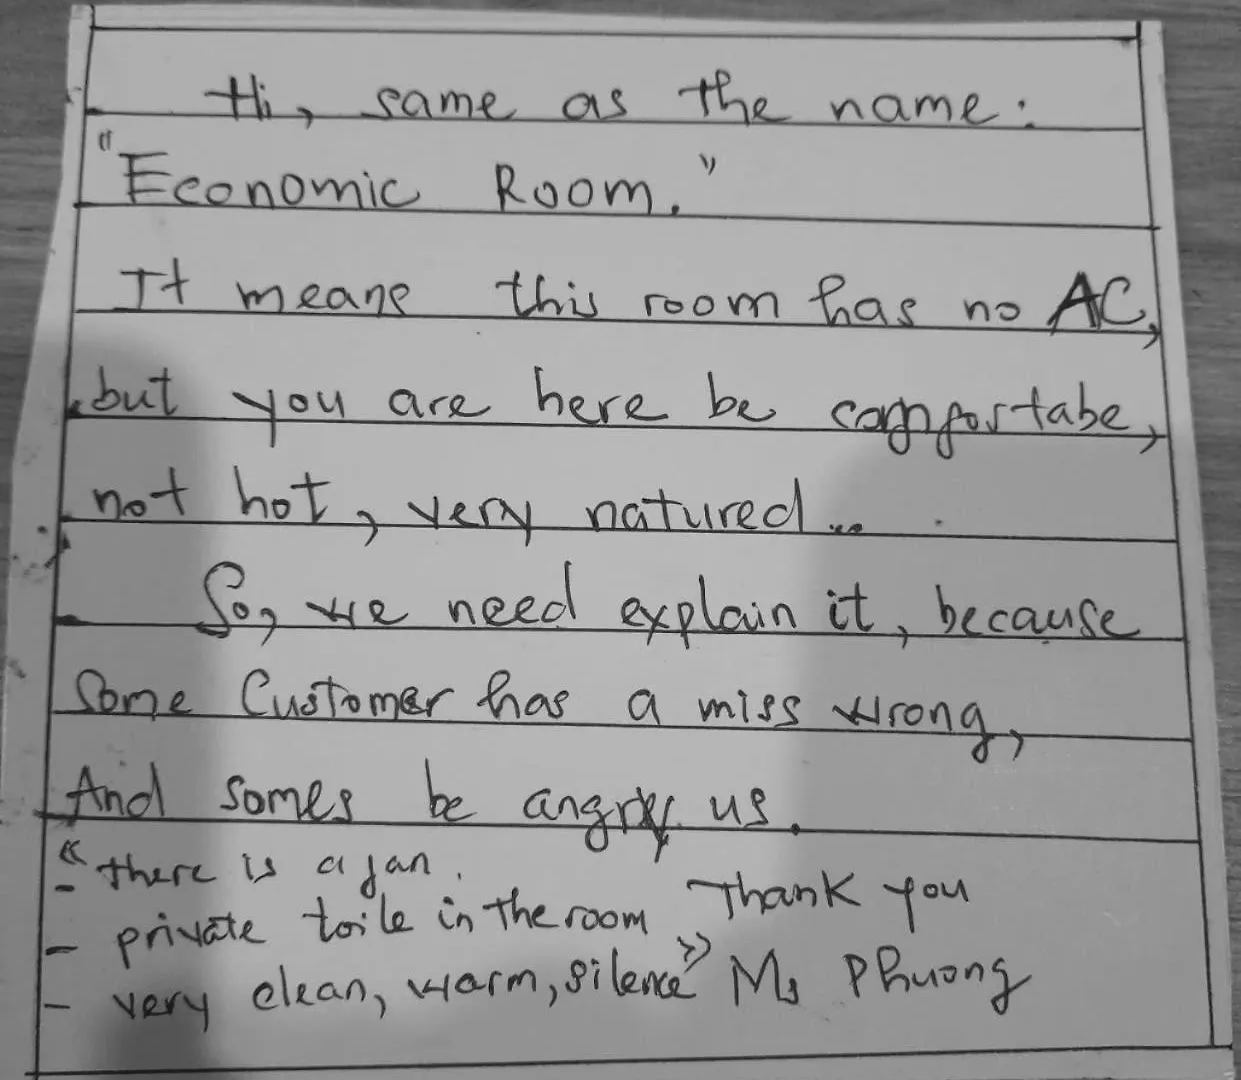 Hi, same as the name:
"Economic Room."
It means this room has no AC,
but you are here be comfortabe,
not hot, very natured...
So, we need explain it, because
Some Customer has a miss wrong,
And somes be angry us.
" there is a fan.
- private toile in the room
- very clean, warm, silence"
Thank you
Ms Phuong